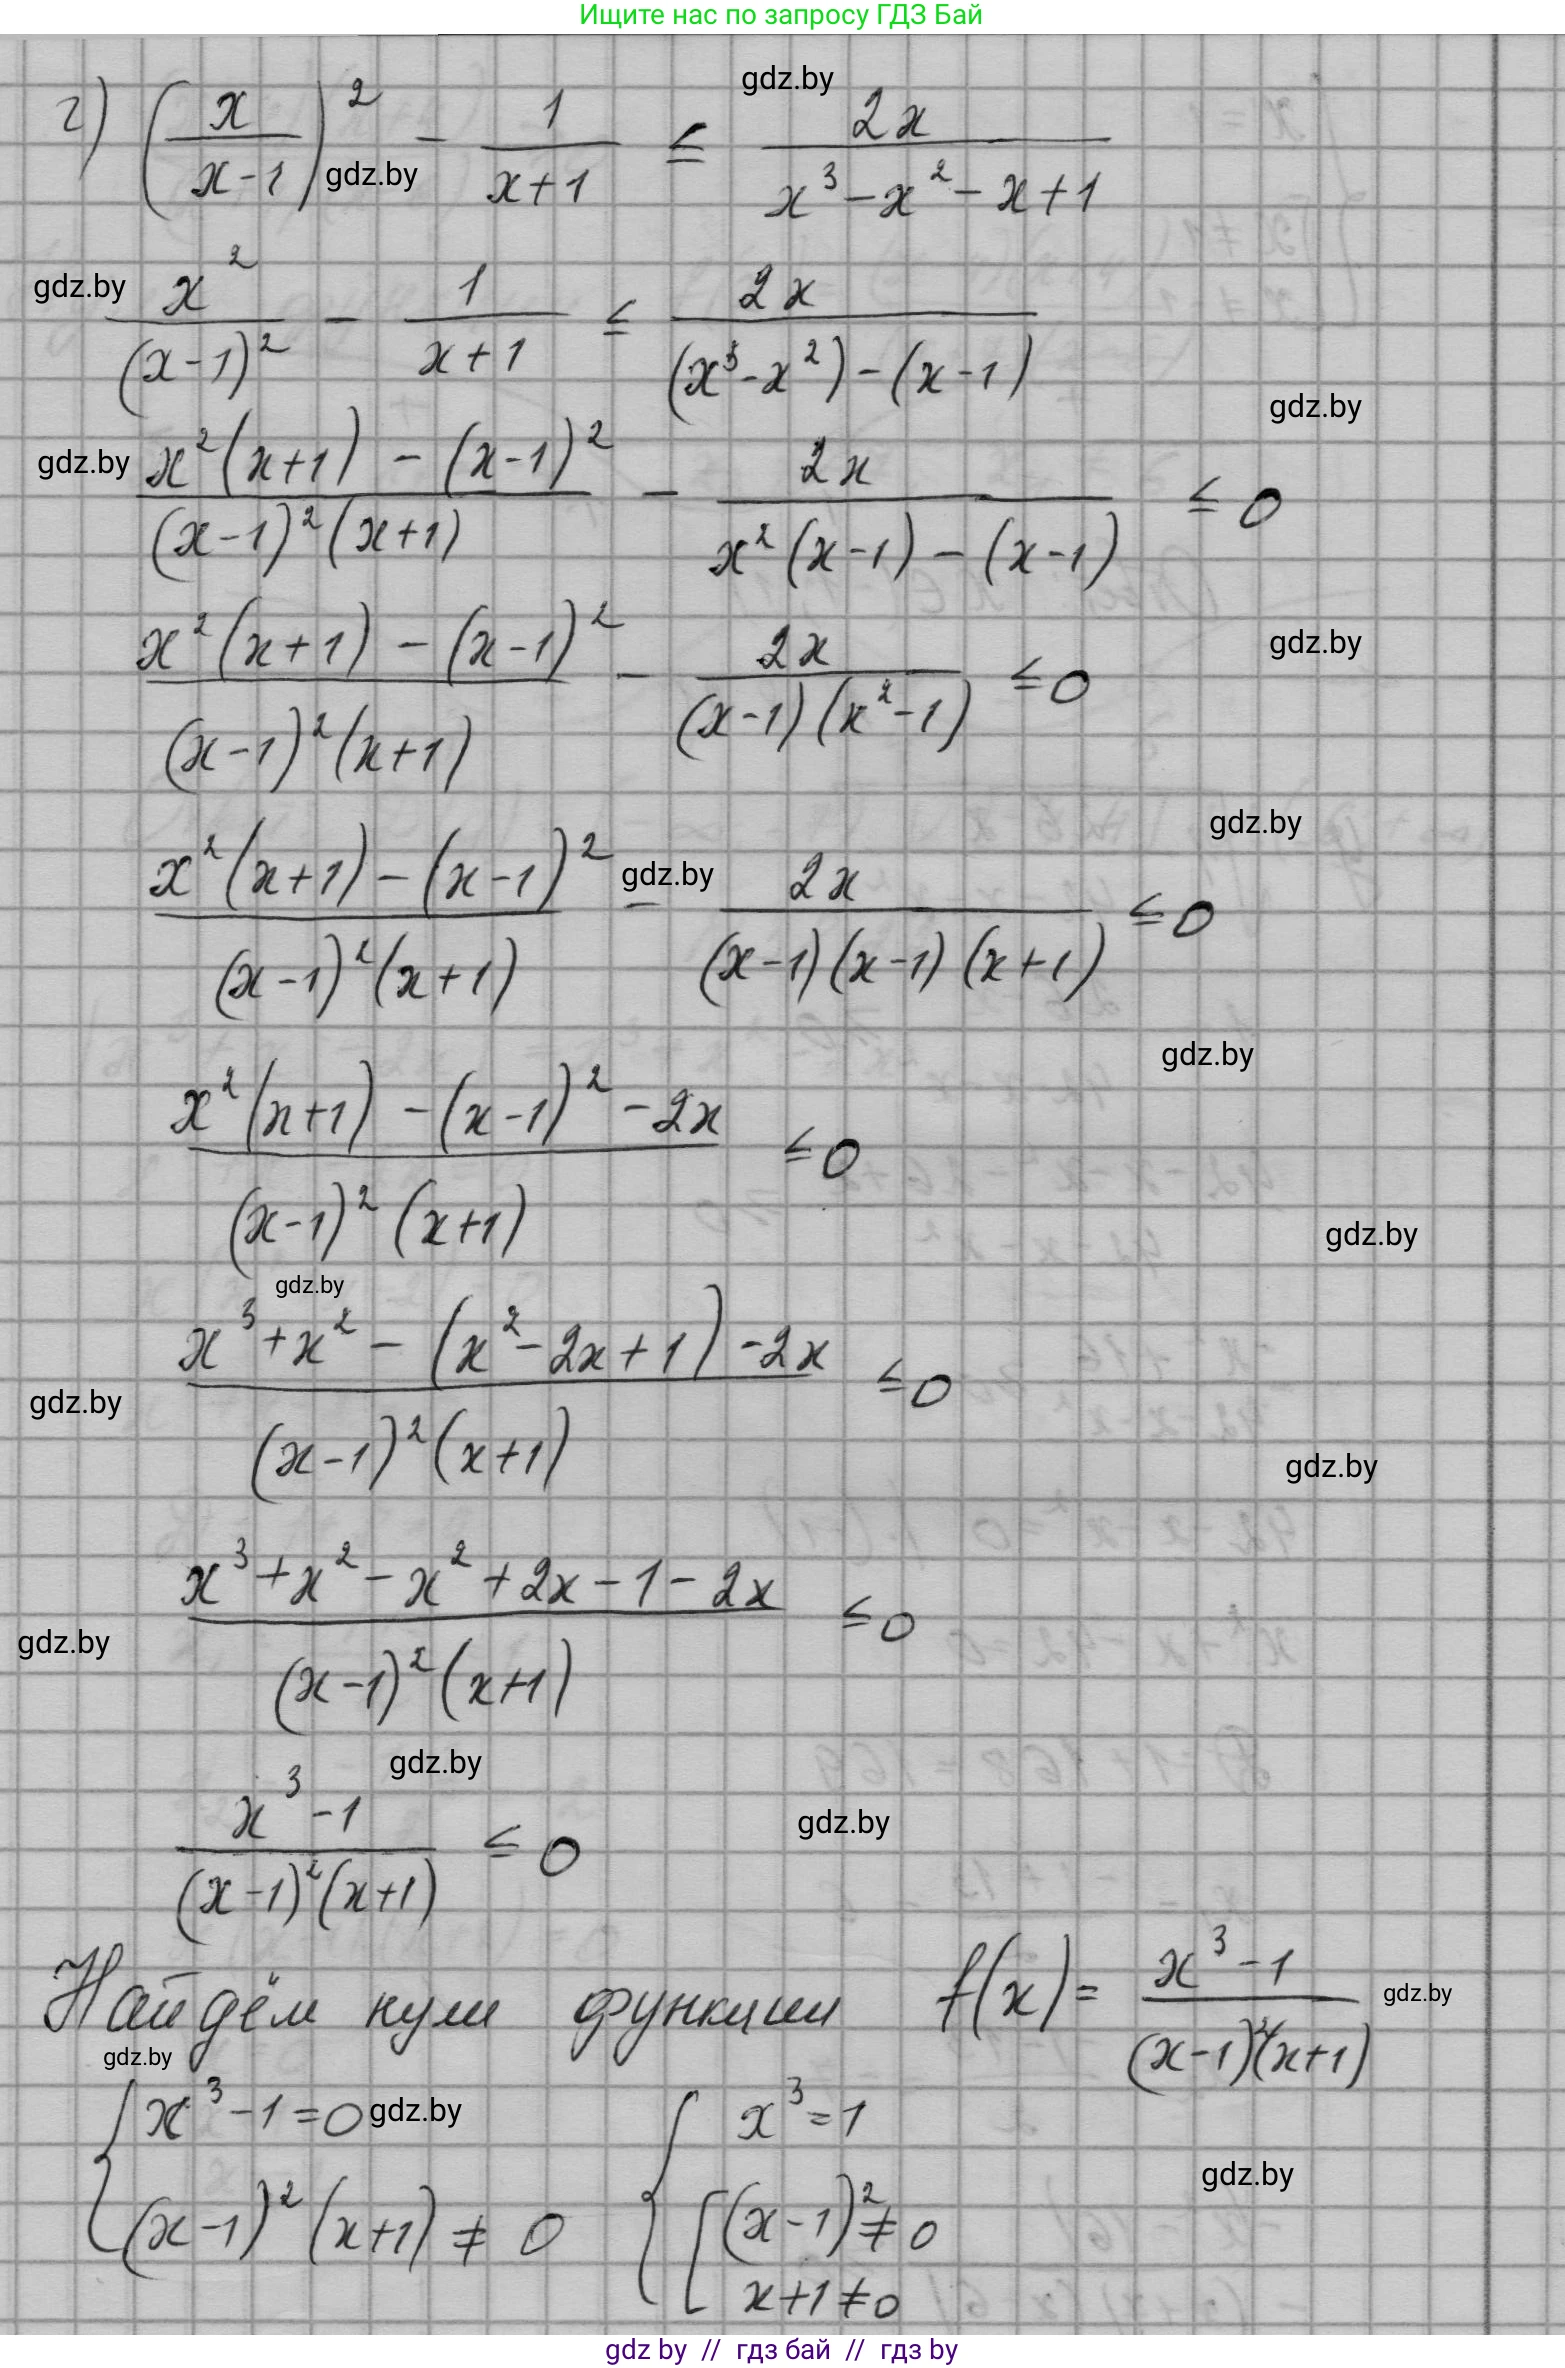 Ищите нас по запросу ГДЗ Бай
gdz.by
г) (x/(x-1))² - 1/(x+1) ≤ 2x/(x³-x²-x+1)
gdz.by
gdz.by
x²/(x-1)² - 1/(x+1) ≤ 2x/((x³-x²)-(x-1))
gdz.by
gdz.by
(x²(x+1) - (x-1)²)/((x-1)²(x+1)) - 2x/(x²(x-1)-(x-1)) ≤ 0
gdz.by
(x²(x+1) - (x-1)²)/((x-1)²(x+1)) - 2x/((x-1)(x²-1)) ≤ 0
gdz.by
gdz.by
(x²(x+1) - (x-1)²)/((x-1)²(x+1)) - 2x/((x-1)(x-1)(x+1)) ≤ 0
gdz.by
(x²(x+1) - (x-1)² - 2x)/((x-1)²(x+1)) ≤ 0
gdz.by
gdz.by
(x³+x² - (x²-2x+1) - 2x)/((x-1)²(x+1)) ≤ 0
gdz.by
gdz.by
(x³+x²-x²+2x-1-2x)/((x-1)²(x+1)) ≤ 0
gdz.by
gdz.by
(x³-1)/((x-1)²(x+1)) ≤ 0
gdz.by
Найдём нули функции f(x) = (x³-1)/((x-1)²(x+1))
gdz.by
gdz.by
{ x³-1=0 { x³=1
gdz.by
gdz.by
(x-1)²(x+1) ≠ 0 [ (x-1)² ≠ 0
x+1 ≠ 0
gdz by // гдз бай // гдз by